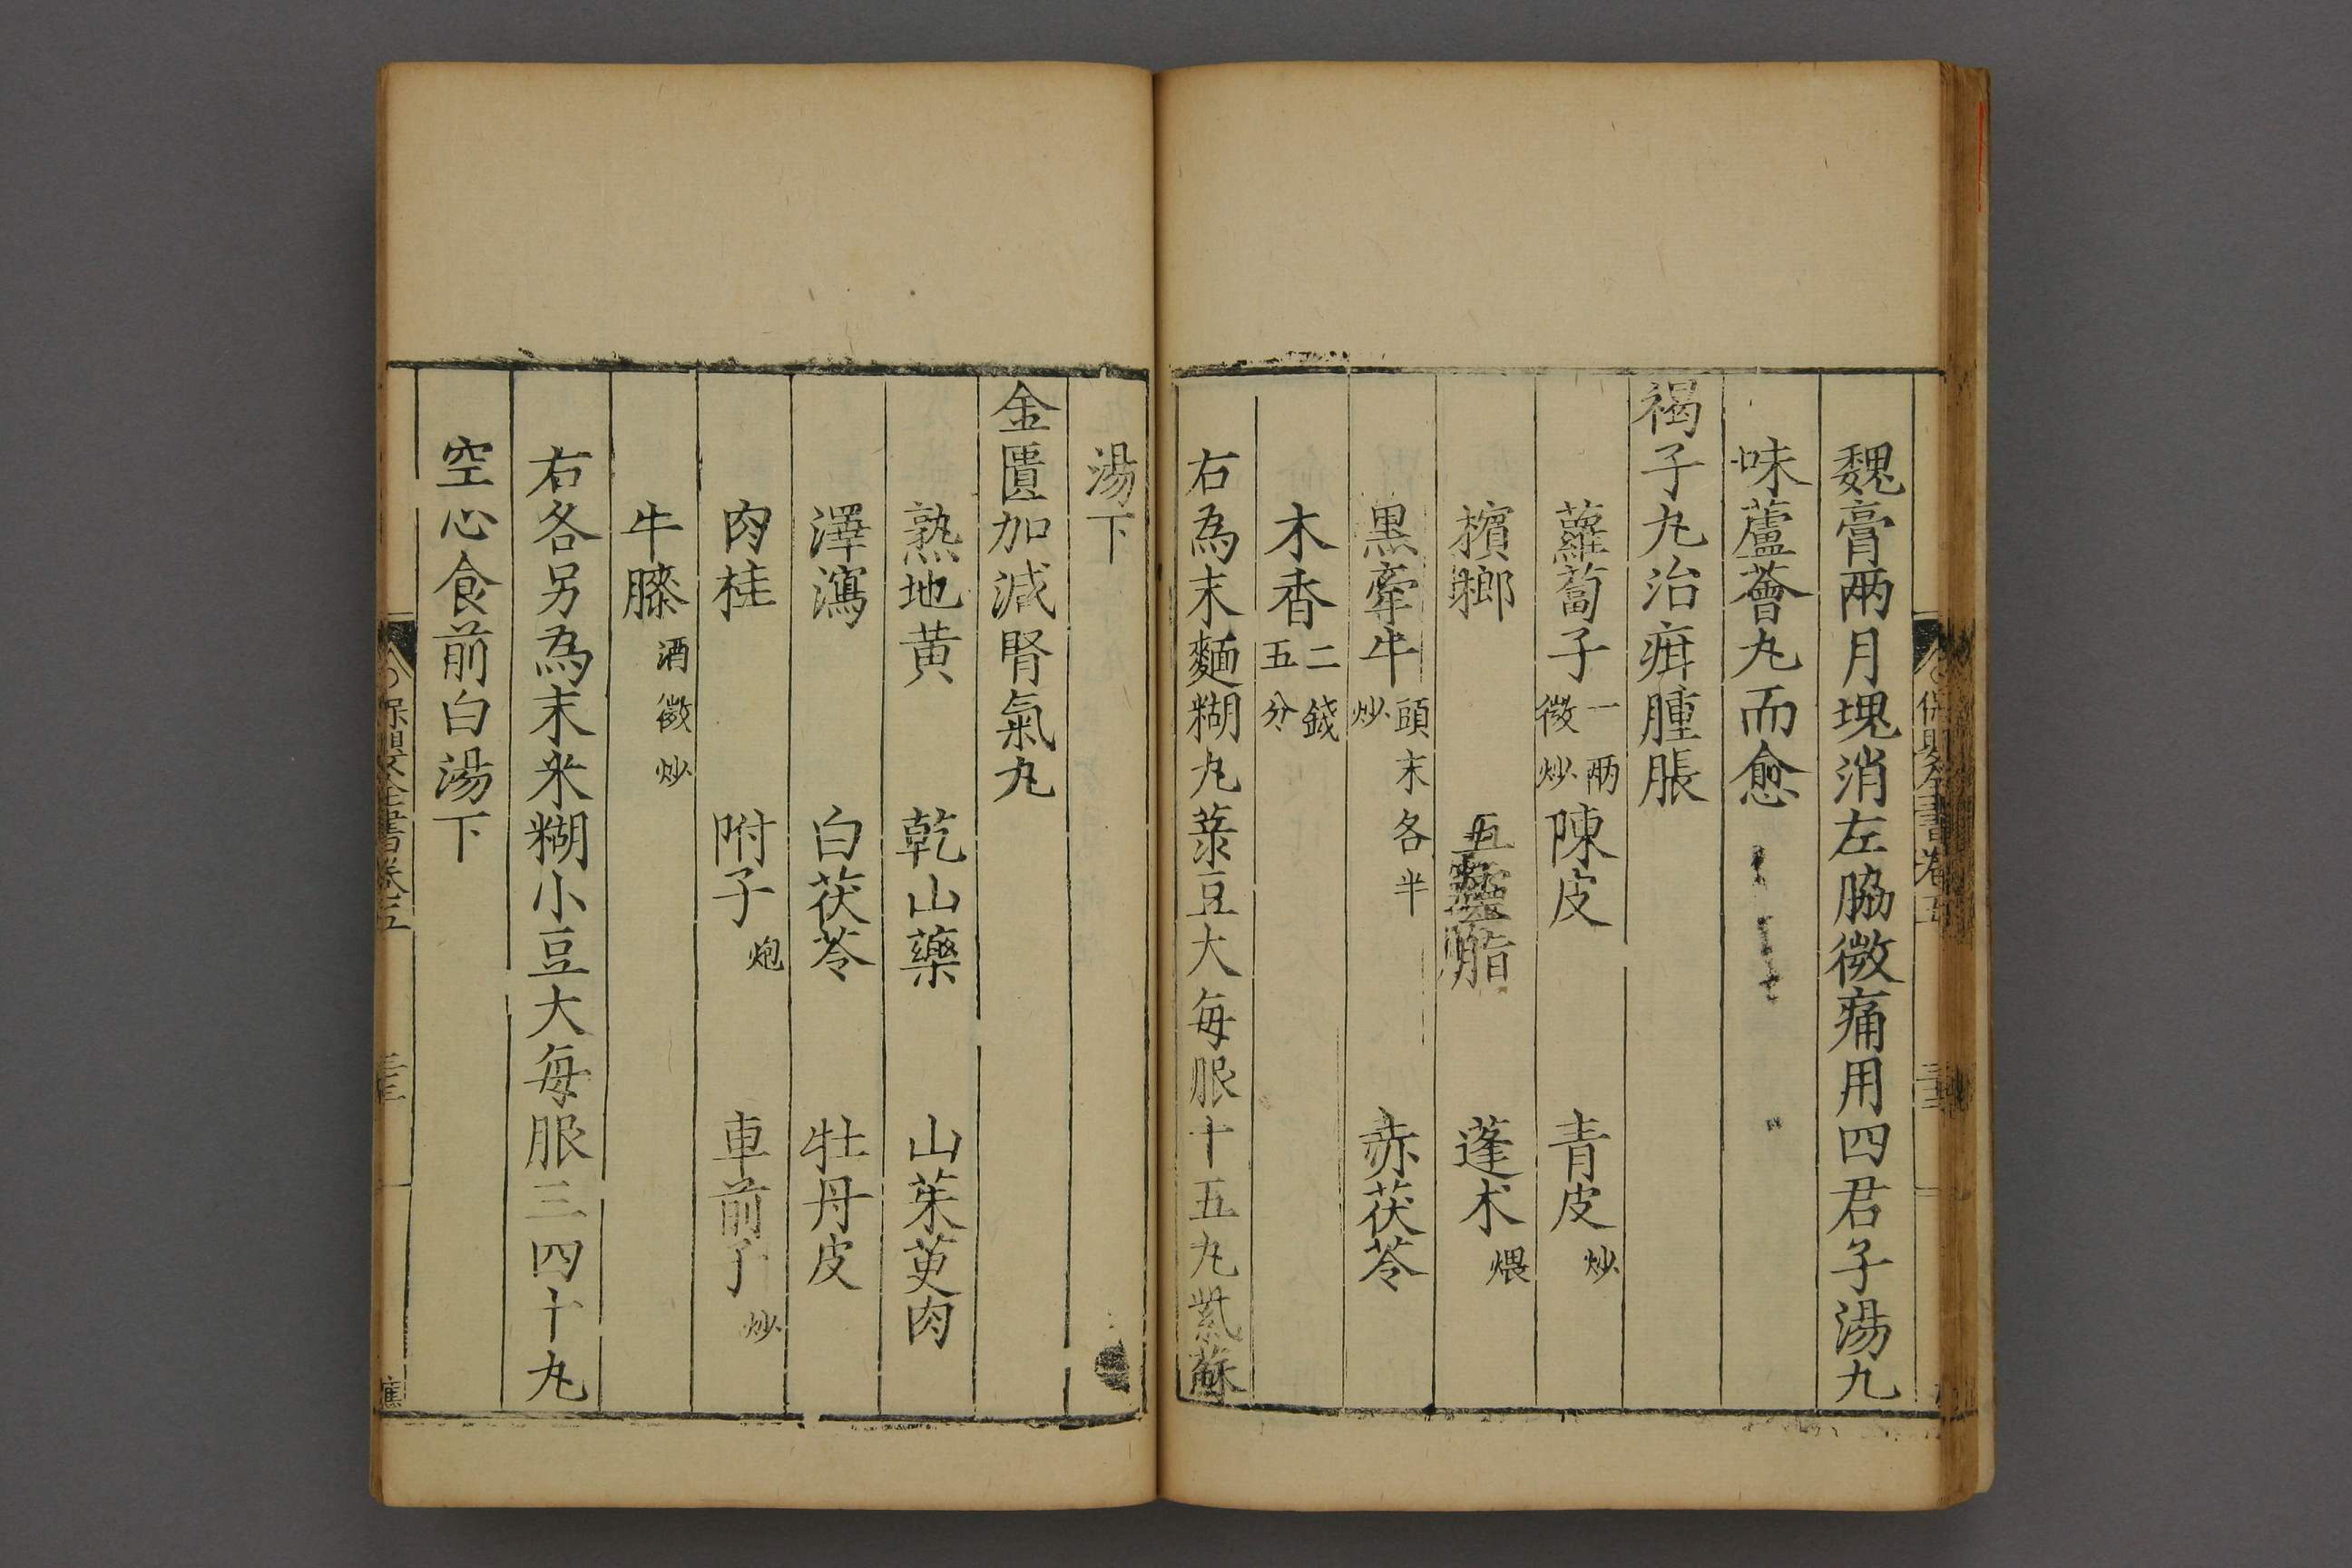 魏膏兩月塊消左脇微痛用四君子湯九
味蘆薈丸而愈
褐子丸治疳腫脹
蘿蔔子一兩微炒 陳皮 青皮炒
檳榔 五靈脂 蓬朮煨
黑牽牛頭末各半炒 赤茯苓
木香二錢五分
右為末麵糊丸菉豆大每服十五丸紫蘇
湯下
金匱加減腎氣丸
熟地黃 乾山藥 山茱萸肉
澤瀉 白茯苓 牡丹皮
肉桂 附子炮 車前子炒
牛膝酒微炒
右各另為末米糊小豆大每服三四十丸
空心食前白湯下
保嬰全書卷五